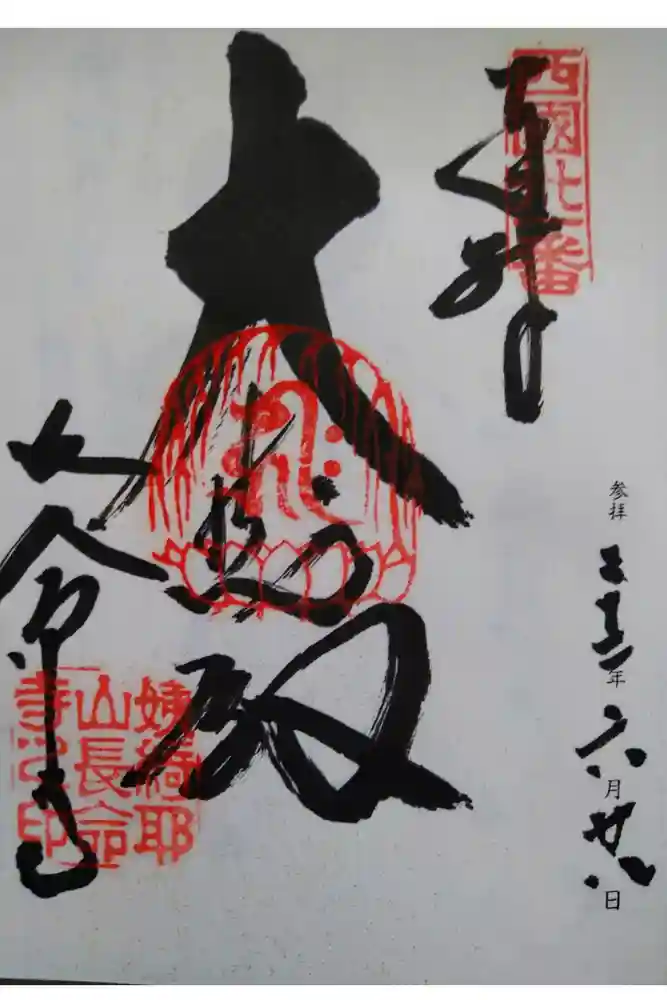 西國卅一番
奉拝
大悲殿
長命寺
姨綺耶
山長命
寺之印
参拝
年六月廿八日